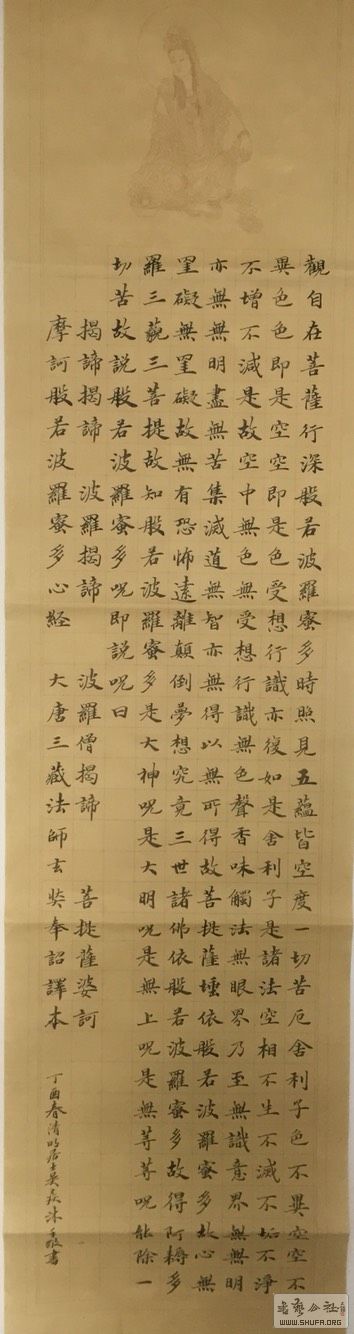 觀自在菩薩行深般若波羅蜜多時照見五蘊皆空度一切苦厄舍利子色不異空空不
異色色即是空空即是色受想行識亦復如是舍利子是諸法空相不生不滅不垢不淨
不增不減是故空中無色無受想行識無色聲香味觸法無眼界乃至無識意界無無明
亦無無明盡無苦集滅道無智亦無得以無所得故菩提薩埵依般若波羅蜜多故心無
罣礙無罣礙故無有恐怖遠離顛倒夢想究竟三世諸佛依般若波羅蜜多故得阿耨多
羅三藐三菩提故知般若波羅蜜多是大神呪是大明呪是無上呪是無等等呪能除一
切苦故説般若波羅蜜多呪即説呪曰
揭諦揭諦 波羅揭諦 波羅僧揭諦 菩提薩婆訶
摩訶般若波羅蜜多心經 大唐三藏法師玄奘奉詔譯本
丁酉春清明居士吳焱沐手敬書
WWW.SHUFA.ORG